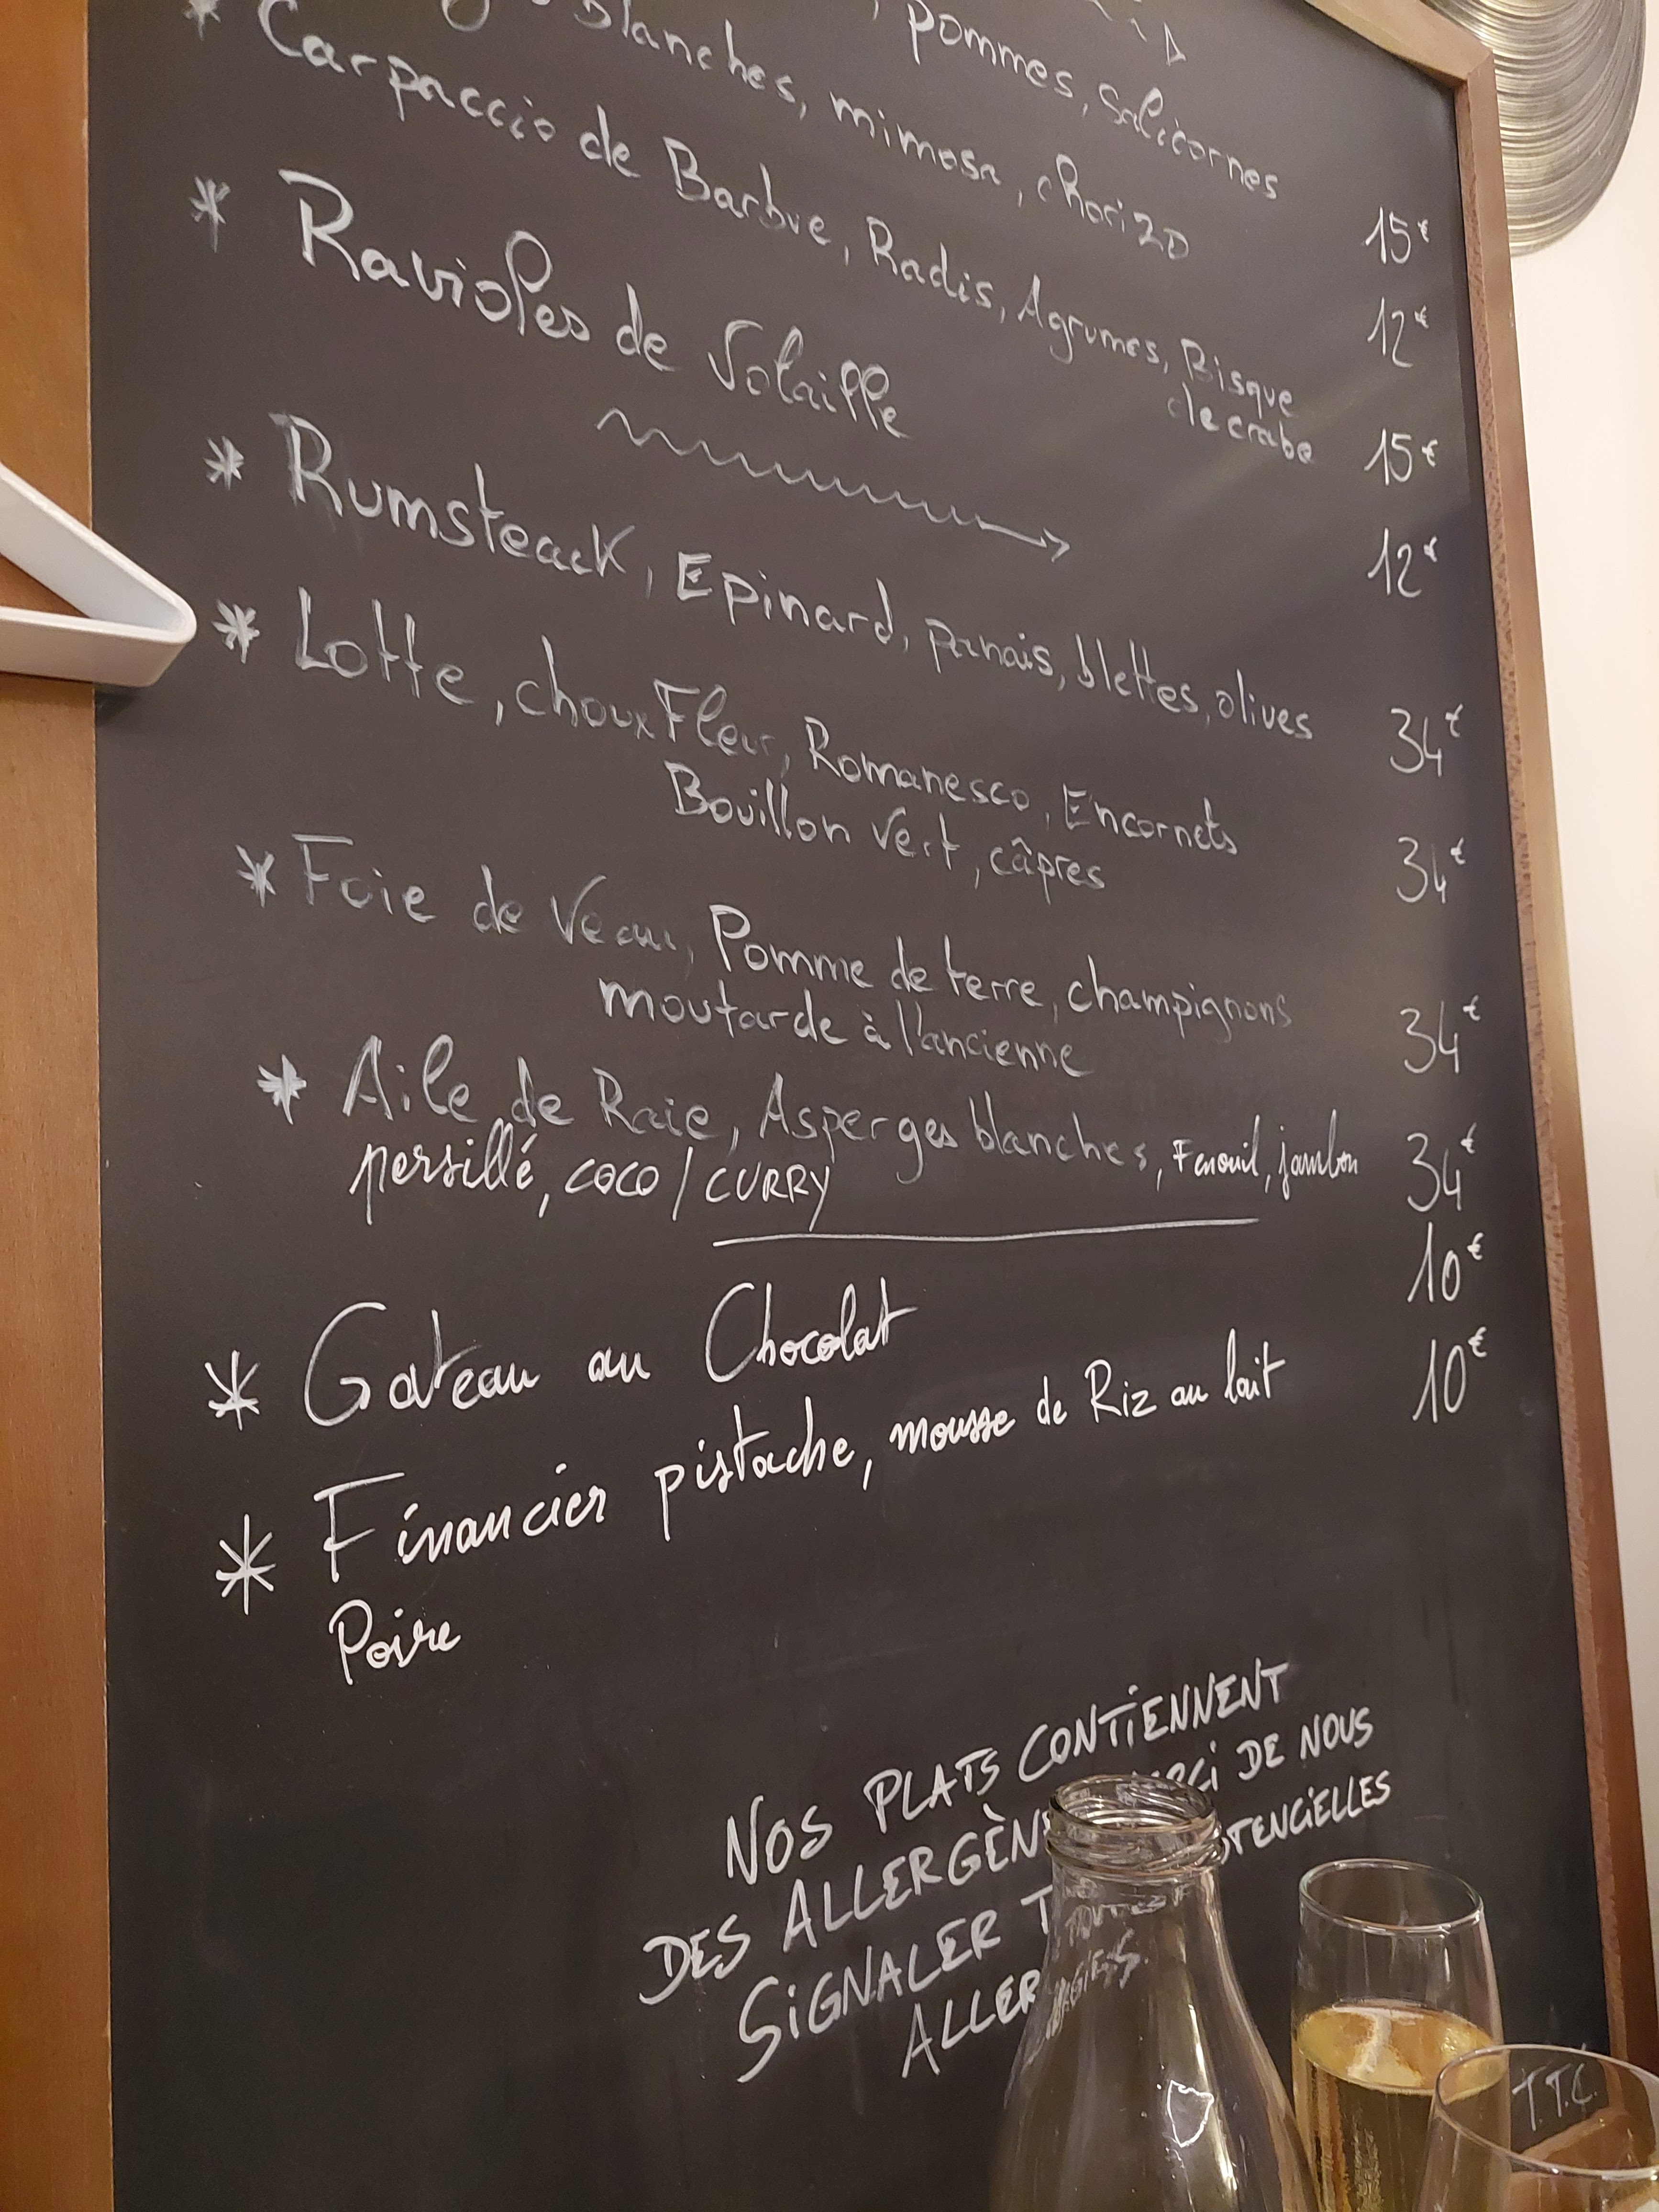 , pommes, Salicornes 15€
blanches, mimosa, chorizo 12€
* Carpaccio de Barbue, Radis, Agrumes, Bisque
de crabe 15€
* Ravioles de Volaille 12€
* Rumsteack, Epinard, panais, blettes, olives 34€
* Lotte, choux Fleur, Romanesco, Encornets
Bouillon Vert, câpres 34€
* Foie de Veau, Pomme de terre, champignons
moutarde à l'ancienne 34€
* Aile de Raie, Asperges blanches, Fenouil, jambon
persillé, coco / CURRY 34€
* Gateau au Chocolat 10€
* Financier pistache, mousse de Riz au lait 10€
Poire
NOS PLATS CONTIENNENT
DES ALLERGÈN MERCI DE NOUS
SIGNALER TOUTES POTENCIELLES
ALLERGIES.
T.T.C.